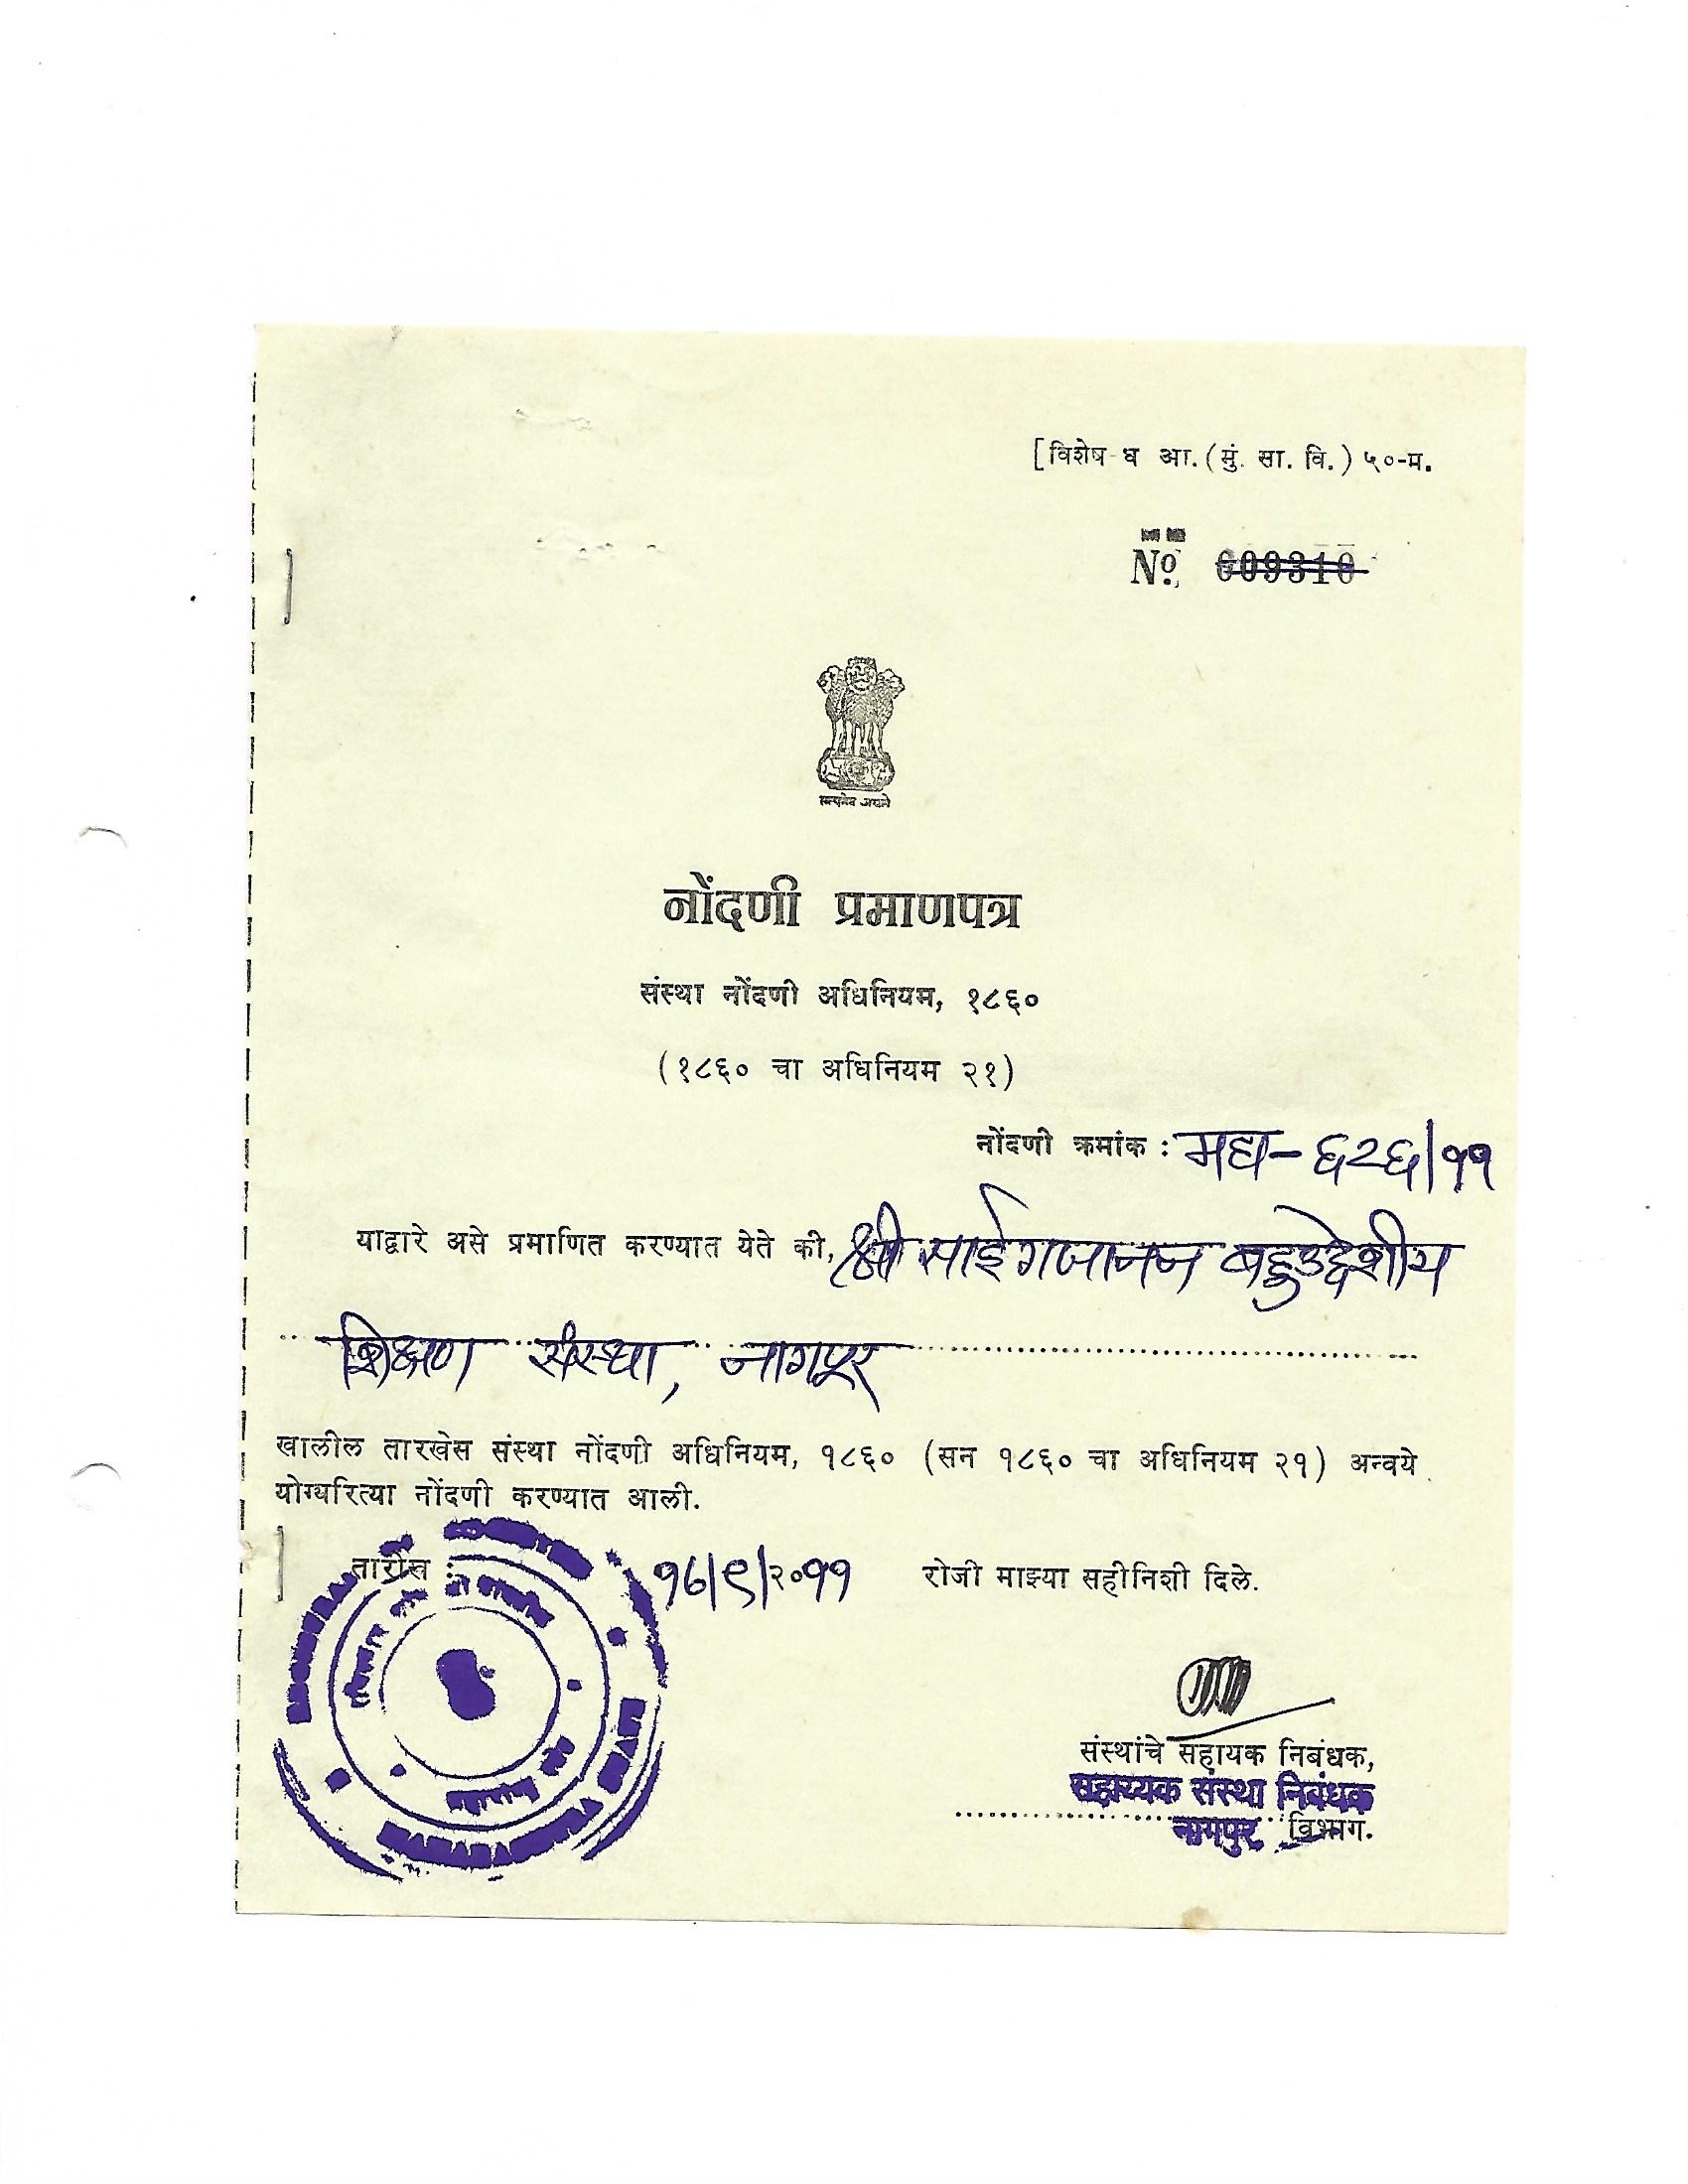 [विशेष-ध आ.(मुं. सा. वि.) ५०-म.
Nº 009310
सत्यमेव जयते
नोंदणी प्रमाणपत्र
संस्था नोंदणी अधिनियम, १८६०
(१८६० चा अधिनियम २१)
नोंदणी क्रमांक : महा-६२६/११
याद्वारे असे प्रमाणित करण्यात येते की, श्री साई गजानन बहुउद्देशीय
शिक्षण संस्था, नागपूर
खालील तारखेस संस्था नोंदणी अधिनियम, १८६० (सन १८६० चा अधिनियम २१) अन्वये
योग्यरित्या नोंदणी करण्यात आली.
तारीख : १६/९/२०११ रोजी माझ्या सहीनिशी दिले.
संस्थांचे सहायक निबंधक,
सहाय्यक संस्था निबंधक
नागपुर विभाग.